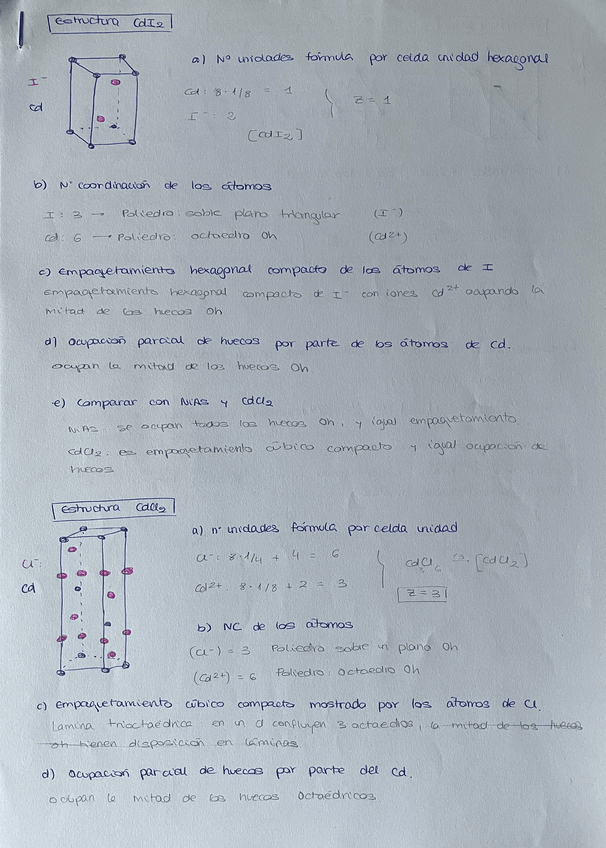 Estructura CdI2
a) Nº unidades fórmula por celda unidad hexagonal
I⁻
Cd
Cd: 8·1/8 = 1
I⁻: 2
z = 1
[CdI2]
b) Nº coordinación de los átomos
I: 3 → Poliedro: sobre plano triangular (I⁻)
Cd: 6 → Poliedro: octaedro Oh (Cd²⁺)
c) Empaquetamiento hexagonal compacto de los átomos de I
Empaquetamiento hexagonal compacto de I⁻ con iones Cd²⁺ ocupando la
mitad de los huecos Oh
d) Ocupación parcial de huecos por parte de los átomos de Cd.
Ocupan la mitad de los huecos Oh
e) Comparar con NiAs y CdCl2
NiAs: se ocupan todos los huecos Oh, y igual empaquetamiento
CdCl2: es empaquetamiento cúbico compacto y igual ocupación de
huecos
Estructura CdCl2
a) nº unidades fórmula por celda unidad
Cl⁻:
Cd
Cl⁻: 8·1/4 + 4 = 6
Cd²⁺: 8·1/8 + 2 = 3
[CdCl2]
z = 3
b) NC de los átomos
(Cl⁻) = 3 Poliedro sobre un plano Oh
(Cd²⁺) = 6 Poliedro: Octaedro Oh
c) Empaquetamiento cúbico compacto mostrado por los átomos de Cl.
Lámina trioctaédrica en un Cl confluyen 3 octaedros, la mitad de los huecos
Oh tienen disposición en láminas
d) Ocupación parcial de huecos por parte del Cd.
Ocupan la mitad de los huecos Octaédricos